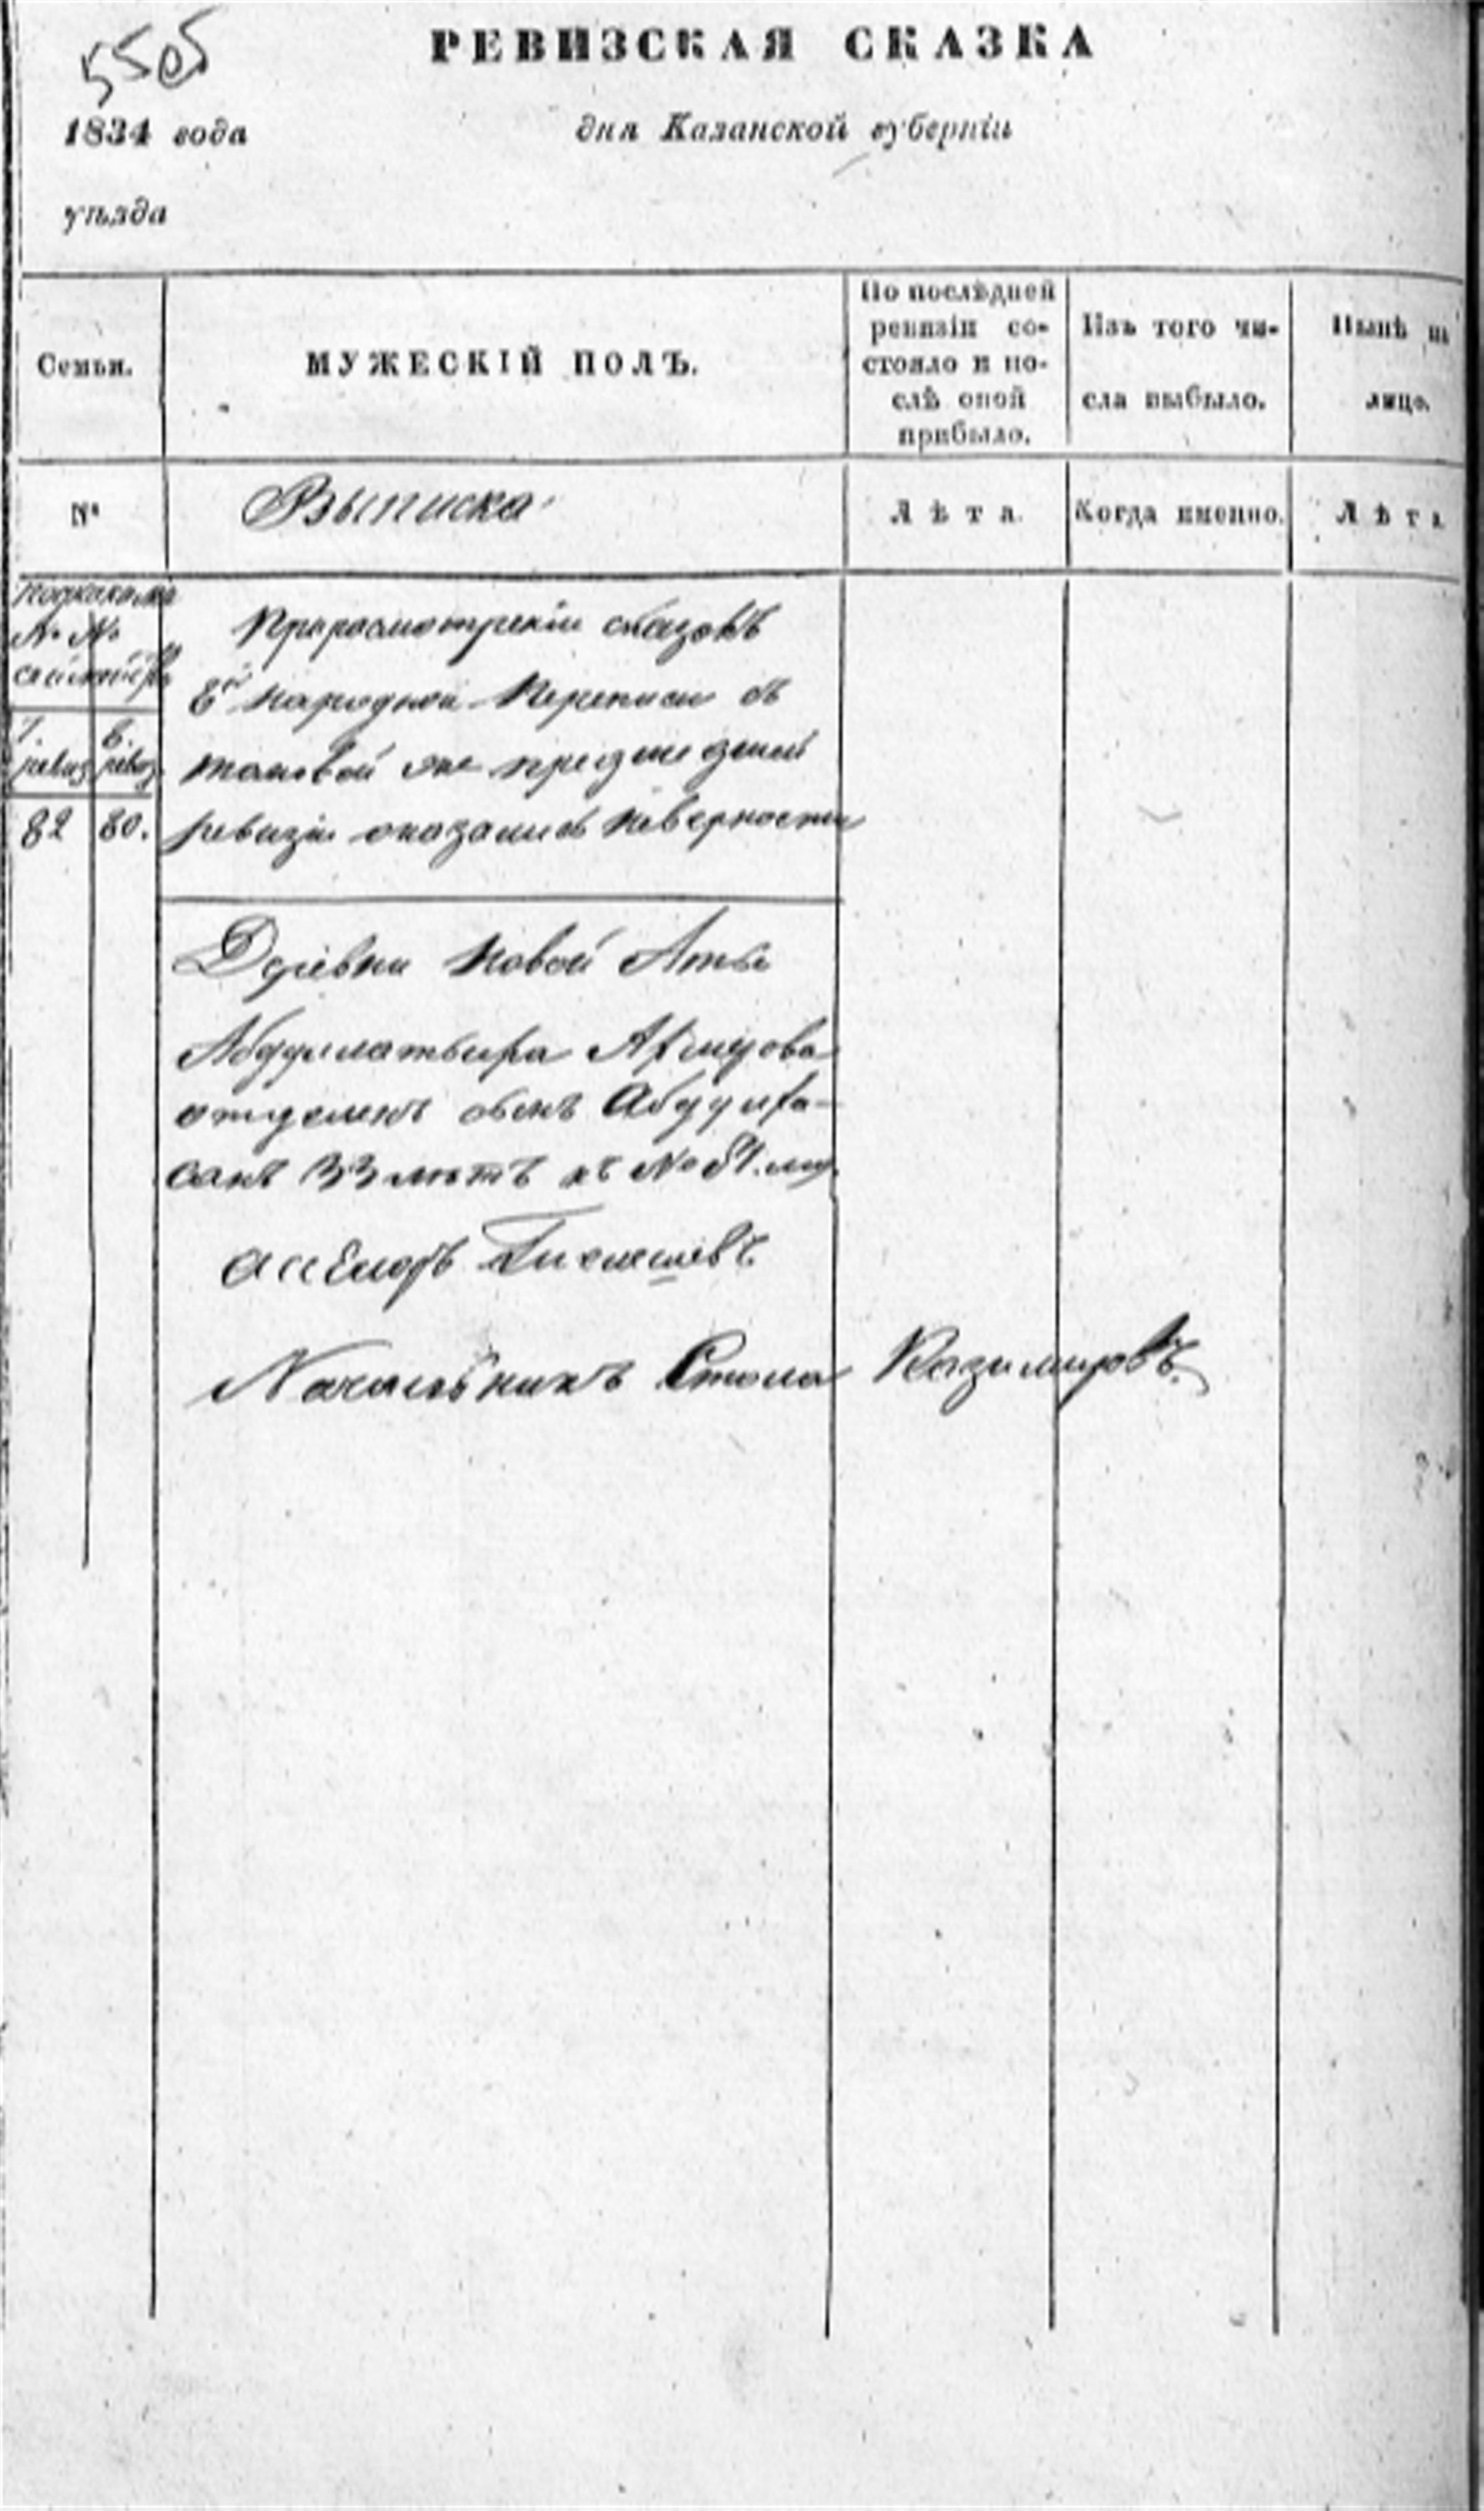 5505
РЕВИЗСКАЯ СКАЗКА
1834 года дня Казанской губернiи
уѣзда
Семьи.
МУЖЕСКIЙ ПОЛЪ.
По послѣдней
ревизiи со-
стояло и по-
слѣ оной
прибыло.
Изъ того чи-
сла выбыло.
Нынѣ на
лицо.
№
Выписка
Лѣта.
Когда именно.
Лѣта
№ №
7. 8.
ревиз ревиз
82 80.
При розсмотренiи сказокъ
8й народной Переписи съ
таковой же предше дшей
ревизiи оказались неверности
Деревни Новой Аты
Ахмерова
отделенъ сынъ Абдулха-
санъ 33 летъ къ №
Асессоръ
Начальникъ Стола Казимировъ.